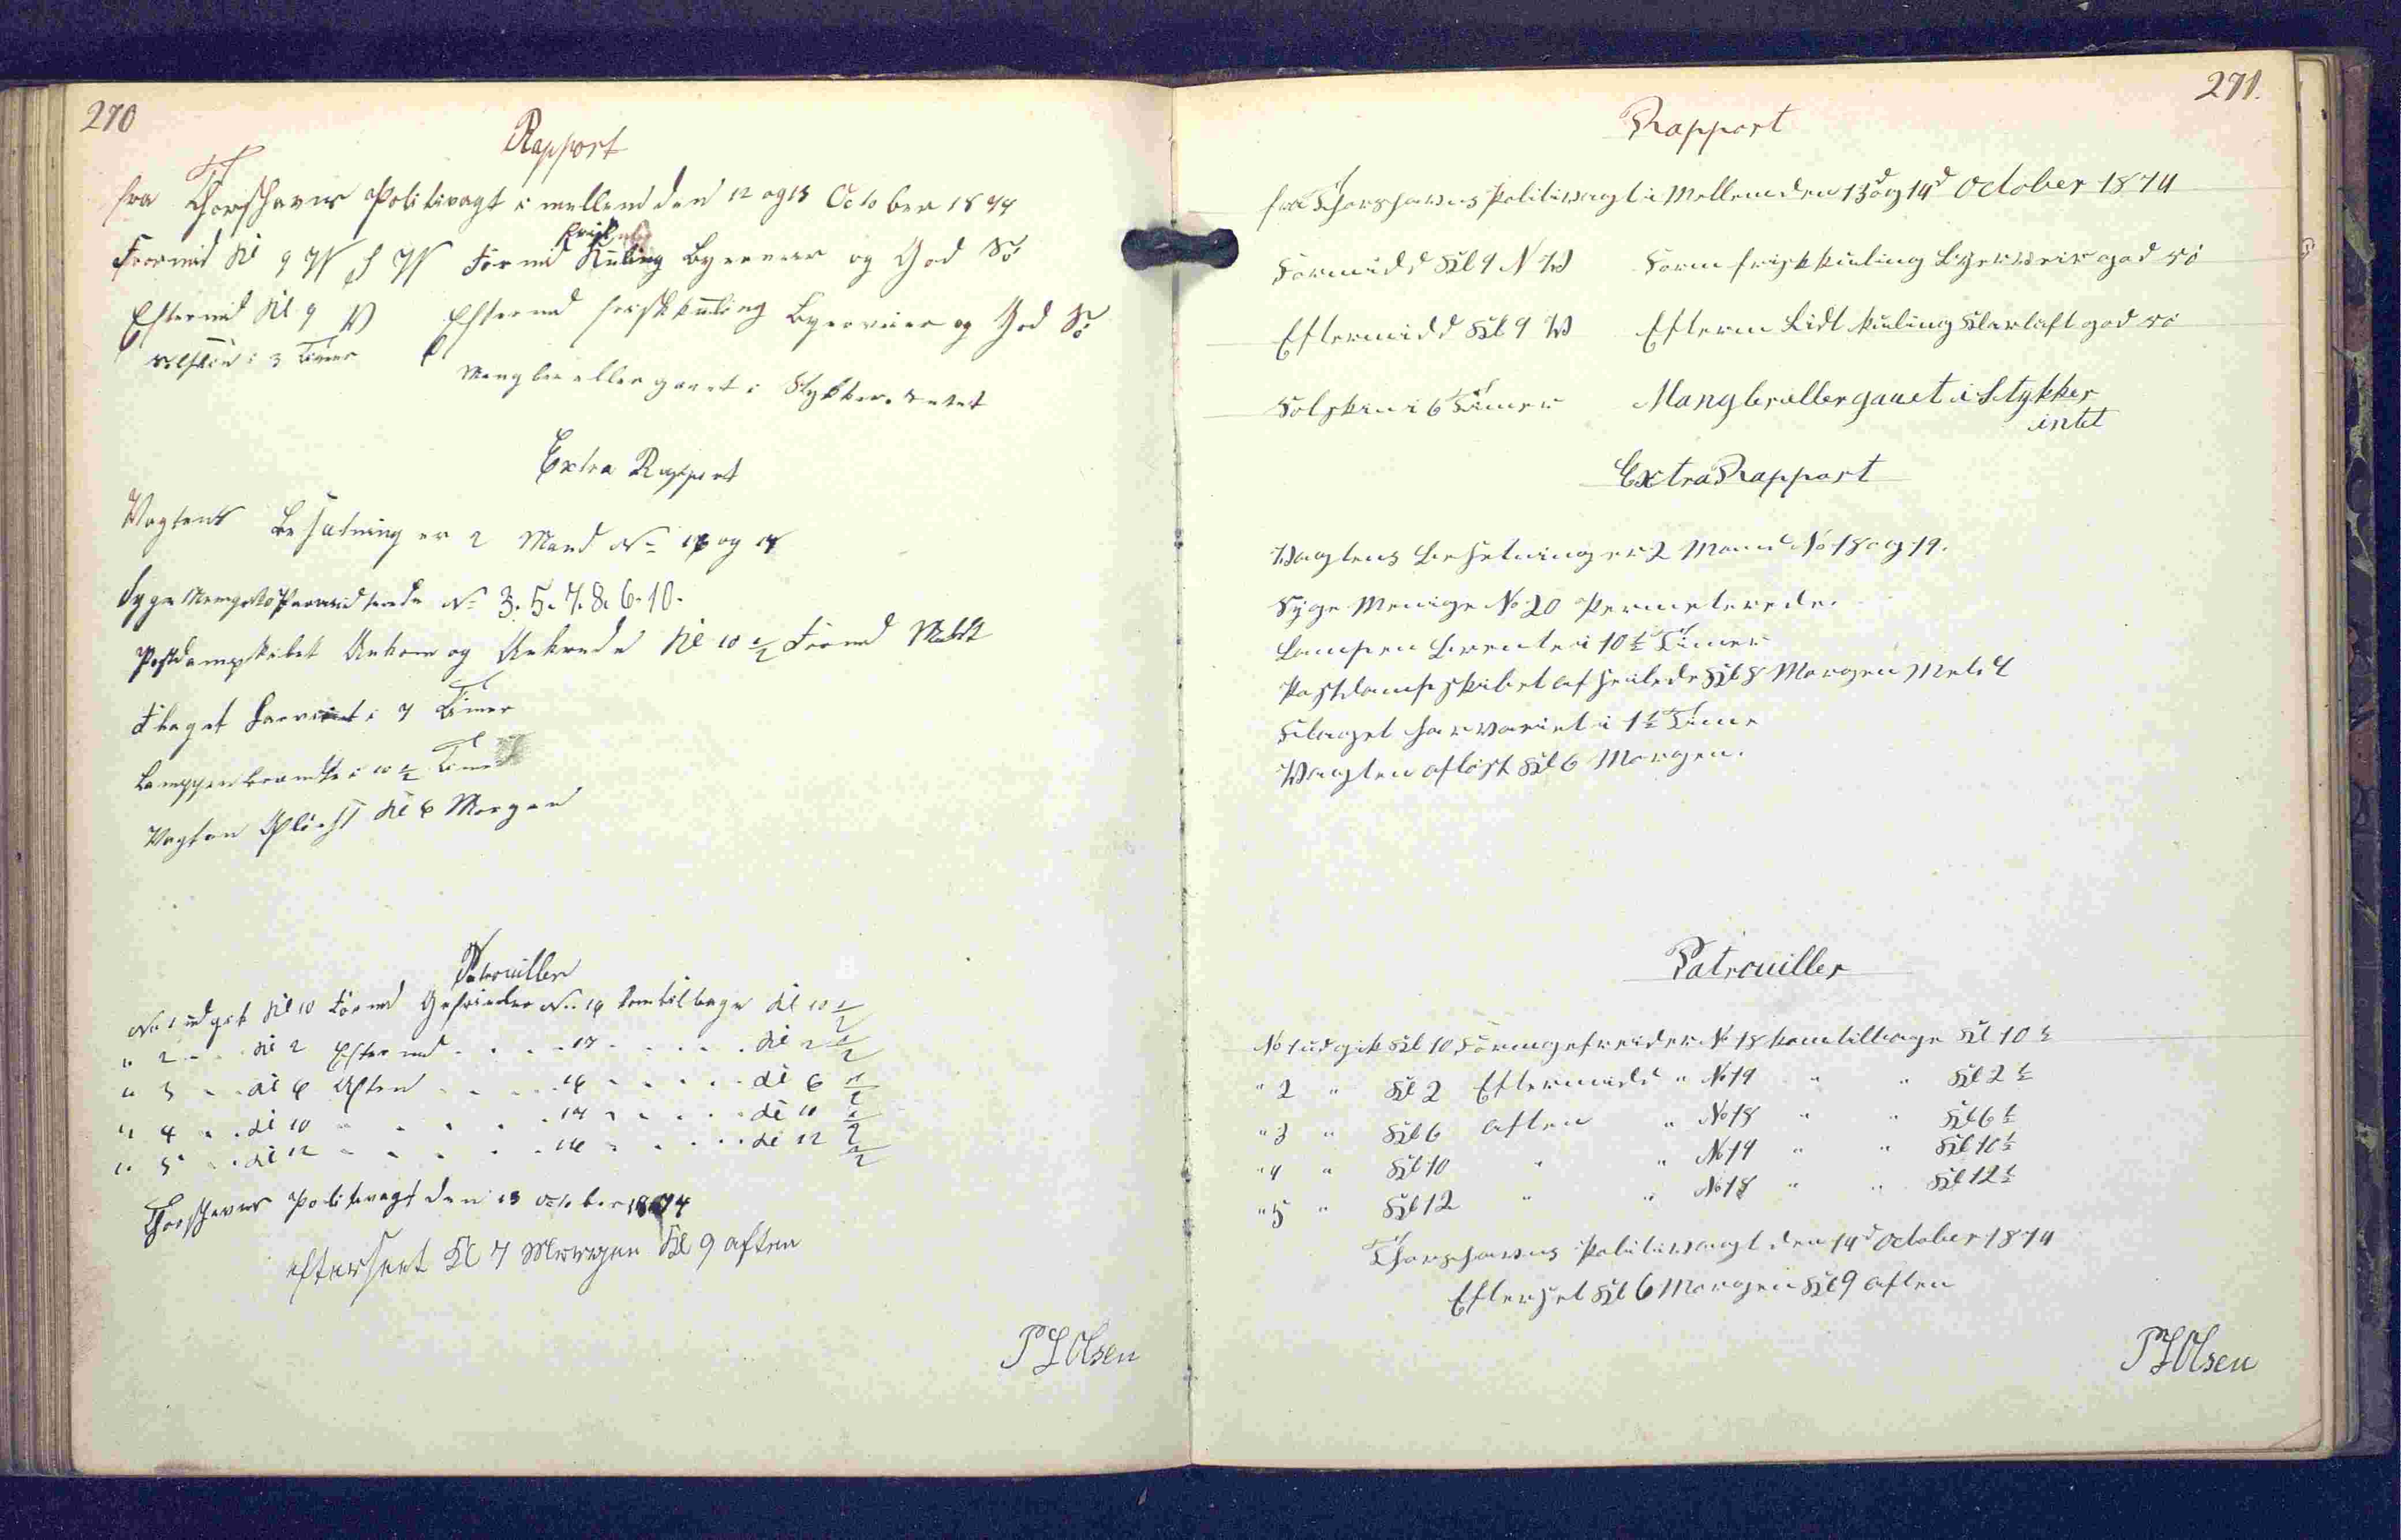 270
Rapport
fra Thorshavns Politivagt i mellem den 12 og 13 October 1874
Formid Kl 9 W Formd frisk Kuling Byerveir og God Sö
Eftermid Kl 9 W Eftermd friskkuling Byerveier og God Sö
Solskin i 3 Timer
Mangler eller gaaet i Stykker intet
Extra Rapport
Vagtens Besætning er 2 Mand No 16 og 17
Syge Menige No 3. 5. 7. 8. 6. 10.
Postdampskibet Ankom og Ankrede Kl 10 1/2 Formd Meldt
Flaget i 7 Timer
Lampen brændte i 10 1/2 Timer
Vagten Aflöst Kl 6 Morgen
Patrouiller
No 1 udgik Kl 10 Formd Gefreider No 16 kom tilbage Kl 10 1/2
" 2 " Kl 2 Eftermd " 17 " Kl 2 1/2
" 3 " Kl 6 Aften " 16 " Kl 6 1/2
" 4 " Kl 10 " " 17 " Kl 10 1/2
" 5 " Kl 12 " " 16 " Kl 12 1/2
Thorshavns Politivagt den 13 October 1874
efterseet Kl 7 Morgen Kl 9 aften
P L Olsen
271.
Rapport
fra Thorshavns Politivagt i Mellem den 13d og 14d October 1874
Formidd Kl 9 N W Form frisk kuling Byerveir god sö
Eftermidd Kl 9 W Efterm Lidt kuling Klarluft god sö
Solskin i 6 Timer Mangler eller gaaet i Stykker
intet
Extra Rapport
Vagtens Besetning er 2 Mand No 18 og 19.
Syge Menige No 20 Permeterede.
Lampen Brente i 10 1/2 Timer
Postdampskibet afseilede Kl 8 Morgen Meldt
Flaget har vaeriet i 1 1/2 Time
Vagten aflöst Kl 6 Morgen.
Patrouiller
No 1 udgik Kl 10 Form gefreider No 18 kom tilbage Kl 10 1/2
" 2 " Kl 2 Eftermidd " No 19 " " Kl 2 1/2
" 3 " Kl 6 aften " No 18 " " Kl 6 1/2
" 4 " Kl 10 " " No 19 " " Kl 10 1/2
" 5 " Kl 12 " " No 18 " " Kl 12 1/2
Thorshavns Politivagt den 14d October 1874
Efterset Kl 6 Morgen Kl 9 aften
P L Olsen